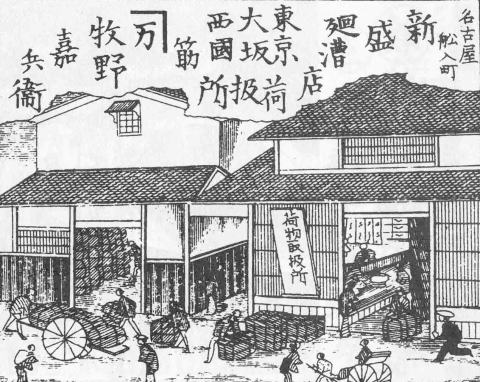 名古屋
舩入町
新盛
廻漕店
東京
大坂
西國
筋
荷扱所
万
牧野
嘉兵衞
荷物取扱所